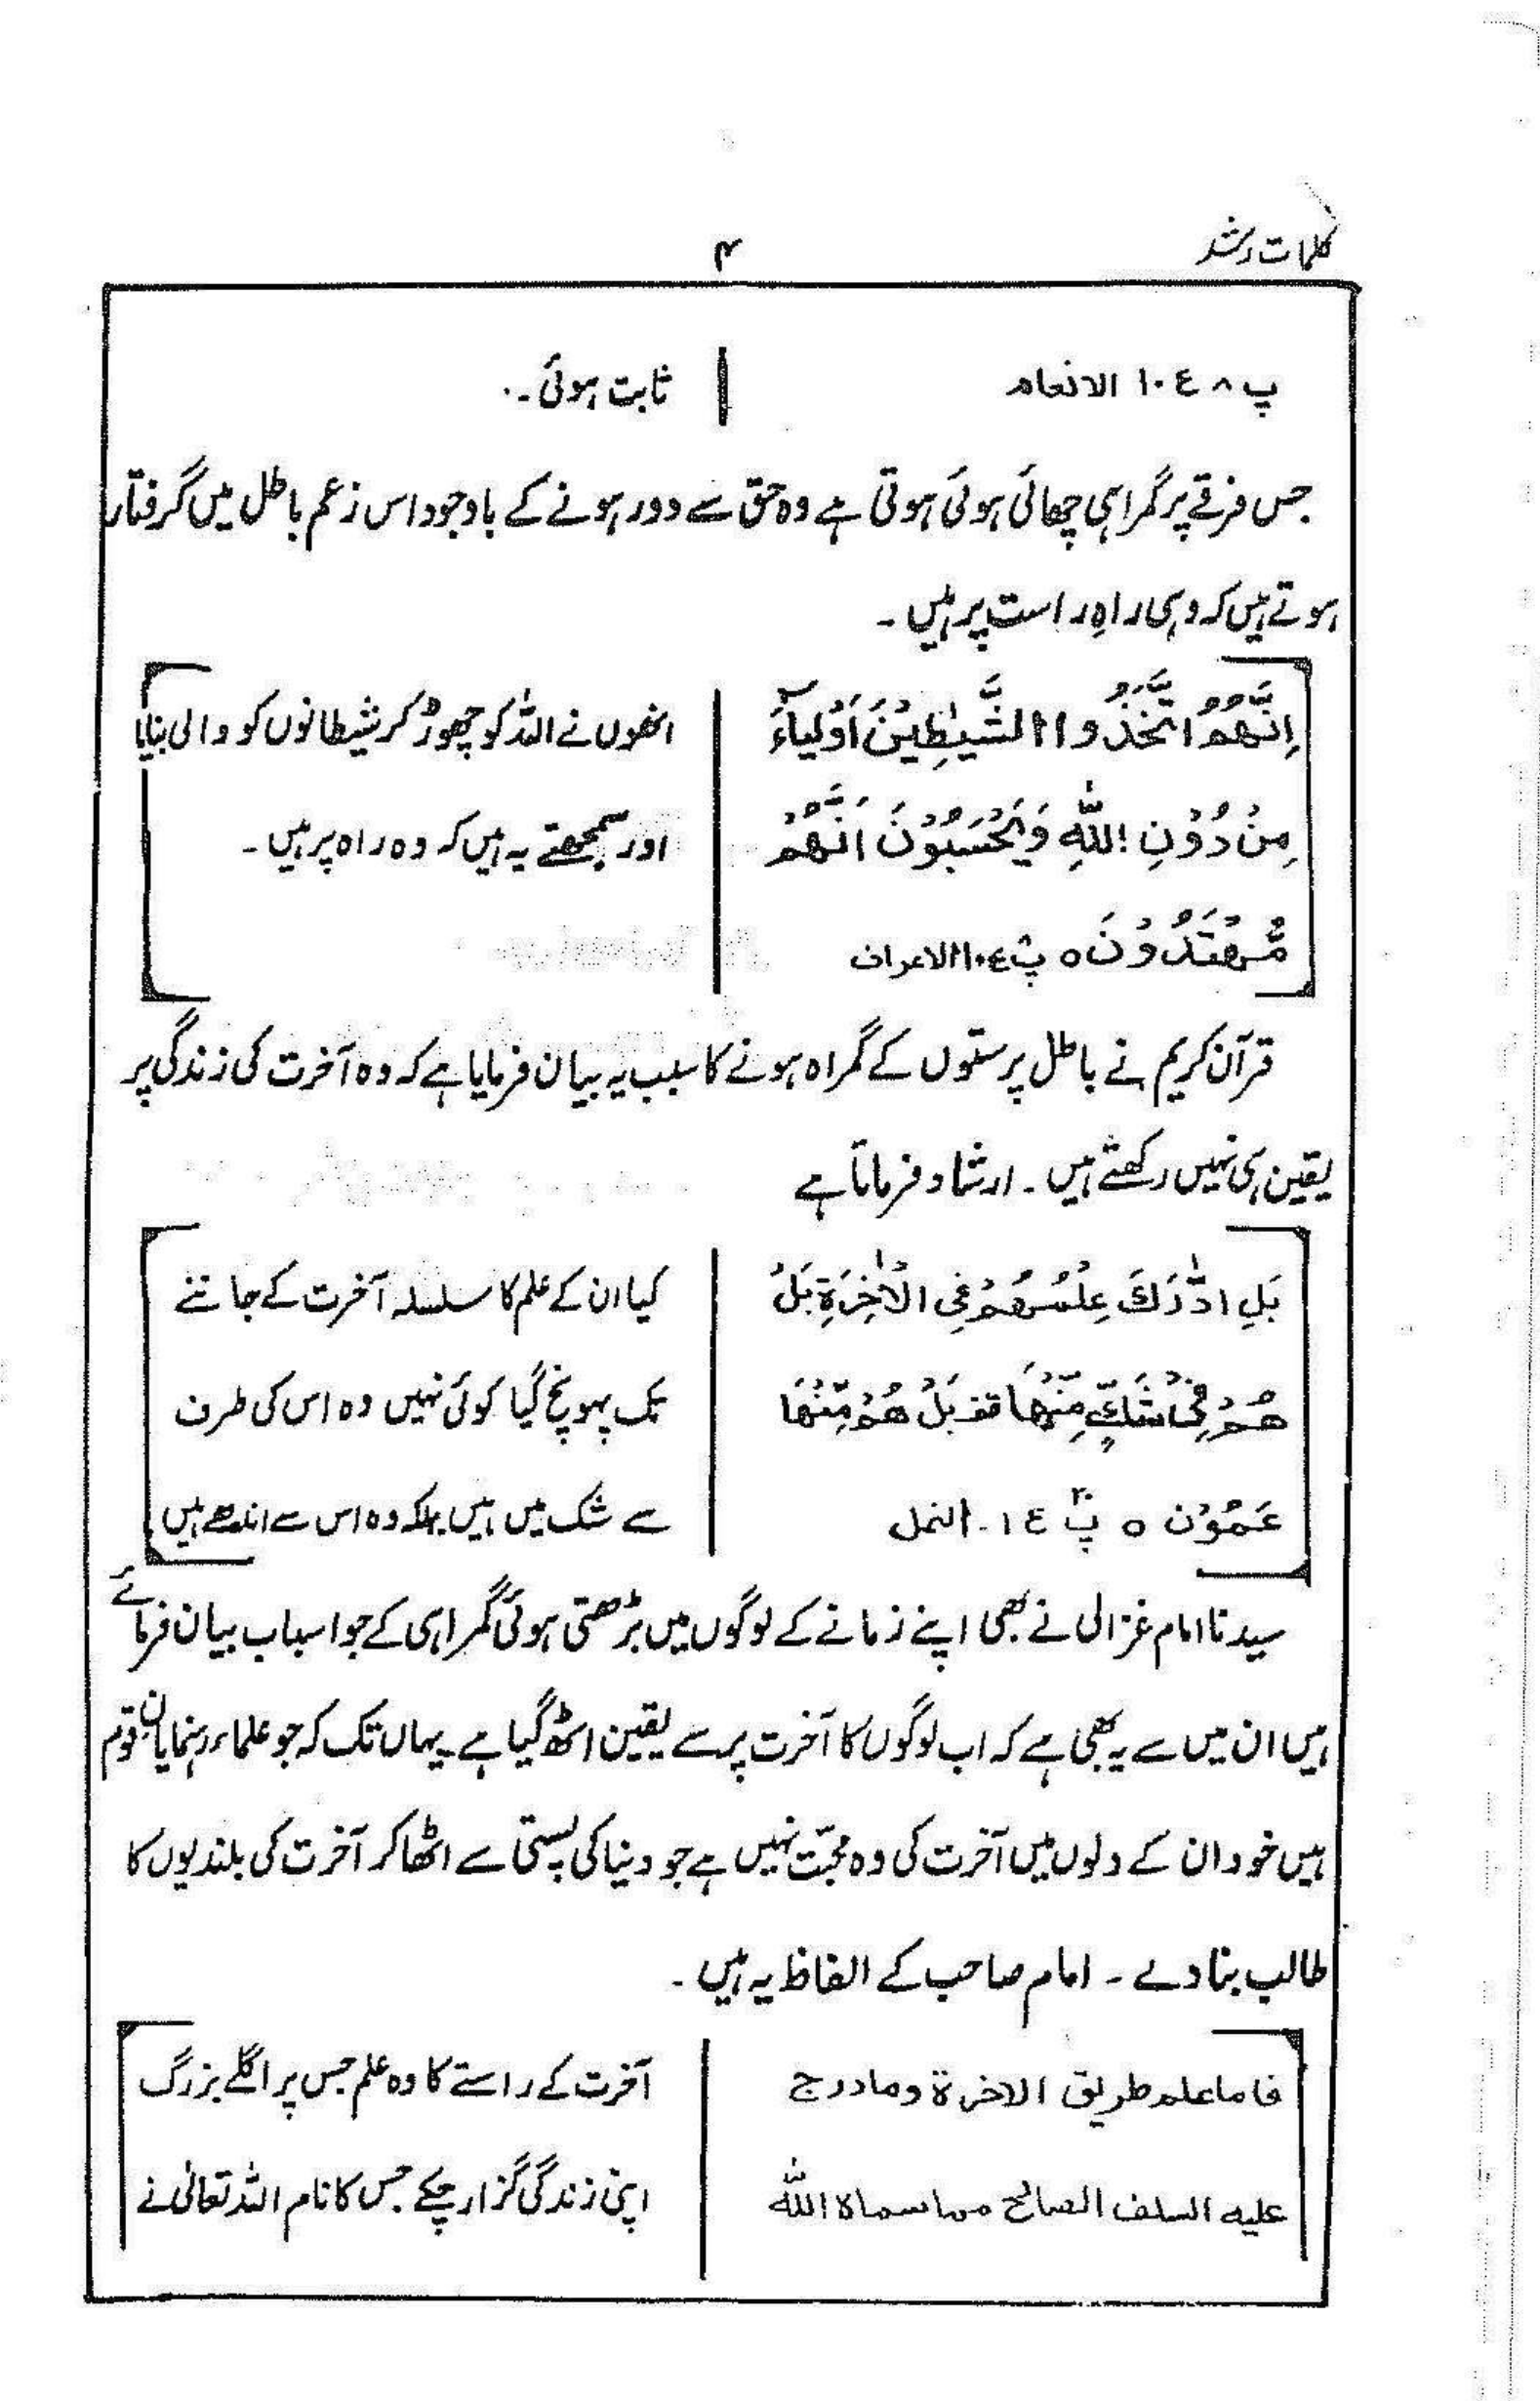 کلمات رشد
۴
پ ۸ ع ۱۰ الانعام
ثابت ہوئی۔
جس فرقے پر گمراہی چھائی ہوئی ہوتی ہے وہ حق سے دور ہونے کے باوجود اس زعم باطل میں گرفتار
ہوتے ہیں کہ وہی راہِ راست پر ہیں۔
اِنَّهُمُ اتَّخَذُوا الشَّيٰطِيْنَ اَوْلِيَآءَ
مِنْ دُوْنِ اللّٰهِ وَيَحْسَبُوْنَ اَنَّهُمْ
مُّهْتَدُوْنَ ٥ پ۸ ع۱۰ الاعراف
انھوں نے اللہ کو چھوڑ کر شیطانوں کو والی بنایا
اور سمجھتے یہ ہیں کہ وہ راہ پر ہیں۔
قرآن کریم نے باطل پرستوں کے گمراہ ہونے کا سبب یہ بیان فرمایا ہے کہ وہ آخرت کی زندگی پر
یقین ہی نہیں رکھتے ہیں۔ ارشاد فرماتا ہے
بَلِ ادّٰرَكَ عِلْمُهُمْ فِی الْاٰخِرَةِ بَلْ
هُمْ فِیْ شَكٍّ مِّنْهَا قف بَلْ هُمْ مِّنْهَا
عَمُوْن ٥ پ۲۰ ع ۱۔ النمل
کیا ان کے علم کا سلسلہ آخرت کے جاننے
تک پہونچ گیا کوئی نہیں وہ اس کی طرف
سے شک میں ہیں بلکہ وہ اس سے اندھے ہیں
سیدنا امام غزالی نے بھی اپنے زمانے کے لوگوں میں بڑھتی ہوئی گمراہی کے جو اسباب بیان فرمائے
ہیں ان میں سے یہ بھی ہے کہ اب لوگوں کا آخرت پر سے یقین اٹھ گیا ہے یہاں تک کہ جو علماء رہنمایان قوم
ہیں خود ان کے دلوں میں آخرت کی وہ محبّت نہیں ہے جو دنیا کی پستی سے اٹھا کر آخرت کی بلندیوں کا
طالب بنا دے۔ امام صاحب کے الفاظ یہ ہیں۔
فاما علم طریق الاخرة وما درج
علیه السلف الصالح مما سماه اللّٰه
آخرت کے راستے کا وہ علم جس پر اگلے بزرگ
اپنی زندگی گزار چکے جس کا نام اللہ تعالیٰ نے